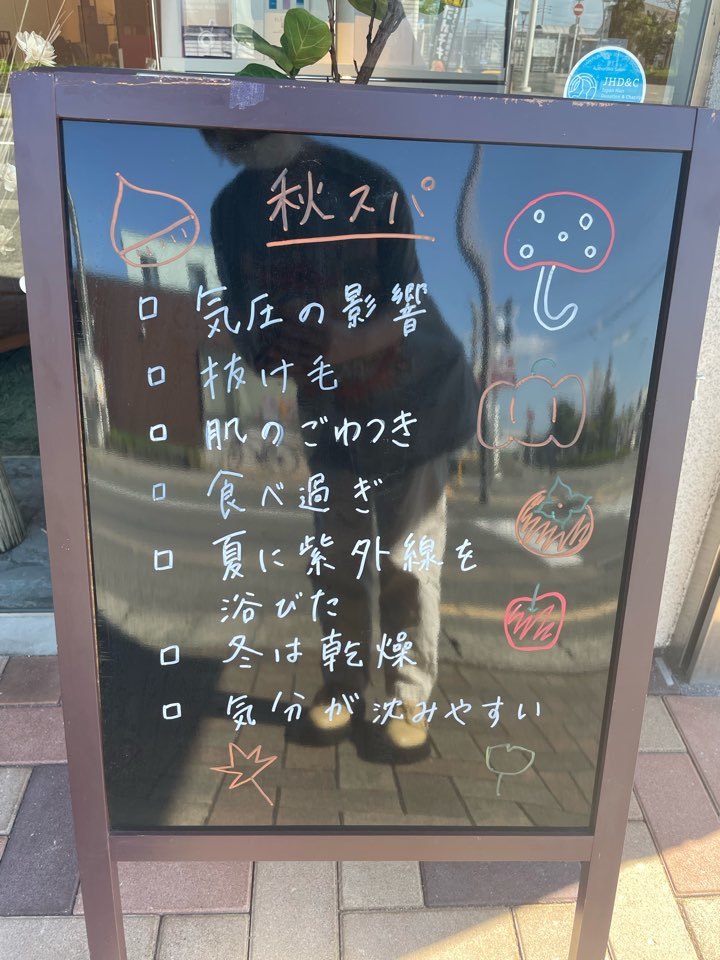 JHD&C
秋スパ
□ 気圧の影響
□ 抜け毛
□ 肌のごわつき
□ 食べ過ぎ
□ 夏に紫外線を
浴びた
□ 冬は乾燥
□ 気分が沈みやすい